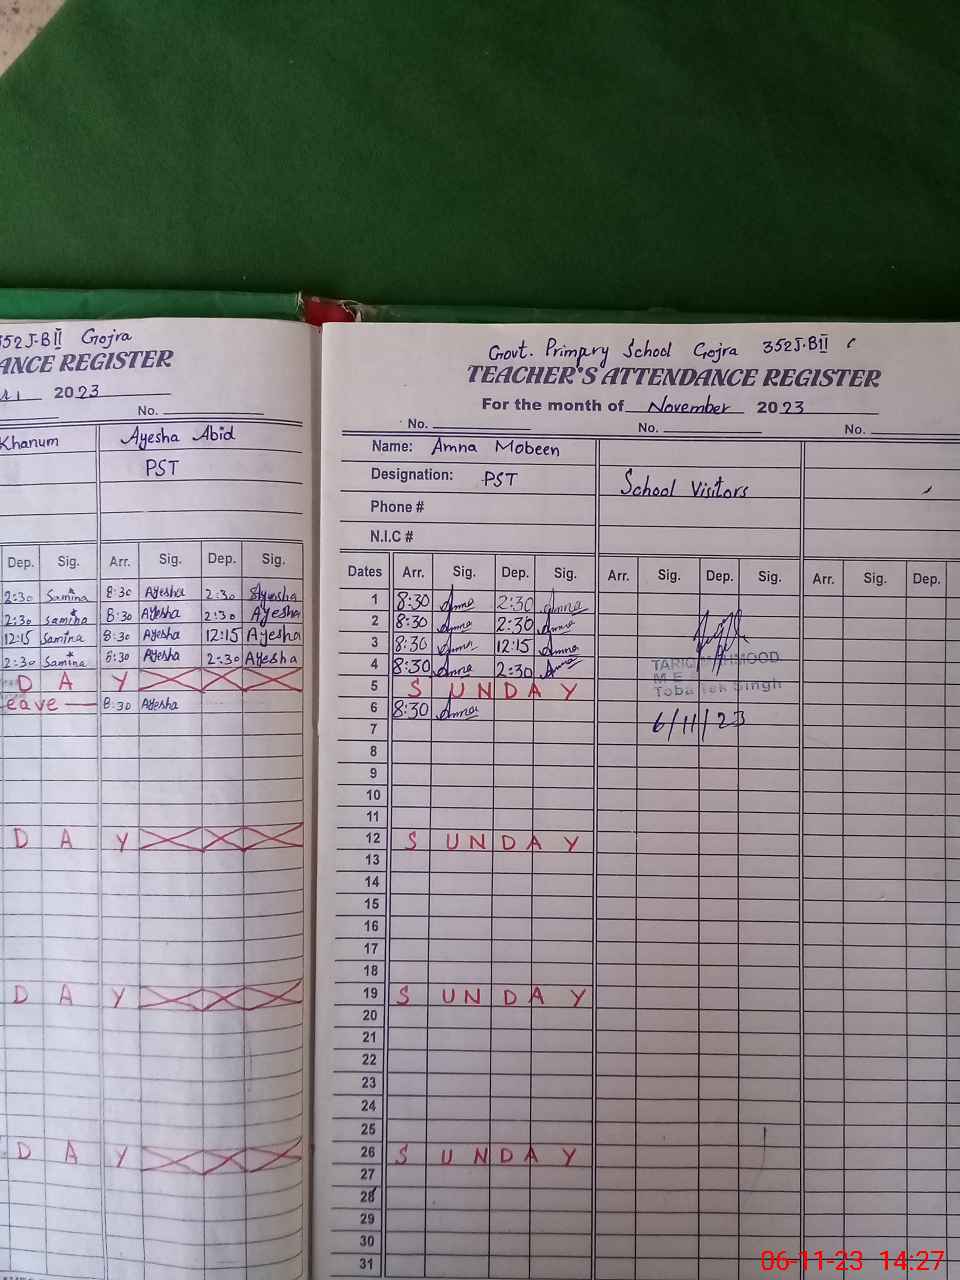 352 J.B II Gojra
ANCE REGISTER
2023
No.
Khanum Ayesha Abid
PST
Dep. Sig. Arr. Sig. Dep. Sig.
2:30 Samina 8:30 Ayesha 2:30 Ayesha
2:30 Samina 8:30 Ayesha 2:30 Ayesha
12:15 Samina 8:30 Ayesha 12:15 Ayesha
2:30 Samina 8:30 Ayesha 2:30 Ayesha
D A Y
eave 8:30 Ayesha
D A Y
D A Y
D A Y
Govt. Primpry School Gojra 352 J.B II
TEACHER'S ATTENDANCE REGISTER
For the month of November 2023
No. No. No.
Name: Amna Mobeen
Designation: PST School Visitors
Phone #
N.I.C #
Dates Arr. Sig. Dep. Sig. Arr. Sig. Dep. Sig. Arr. Sig. Dep.
1 8:30 Amna 2:30 Amna
2 8:30 Amna 2:30 Amna
3 8:30 Amna 12:15 Amna
4 8:30 Amna 2:30 Amna
TARIQ MEHMOOD
M E
Toba Tek Singh
5 S U N D A Y
6 8:30 Amna
6/11/23
7
8
9
10
11
12 S U N D A Y
13
14
15
16
17
18
19 S U N D A Y
20
21
22
23
24
25
26 S U N D A Y
27
28
29
30
31
06-11-23 14:27